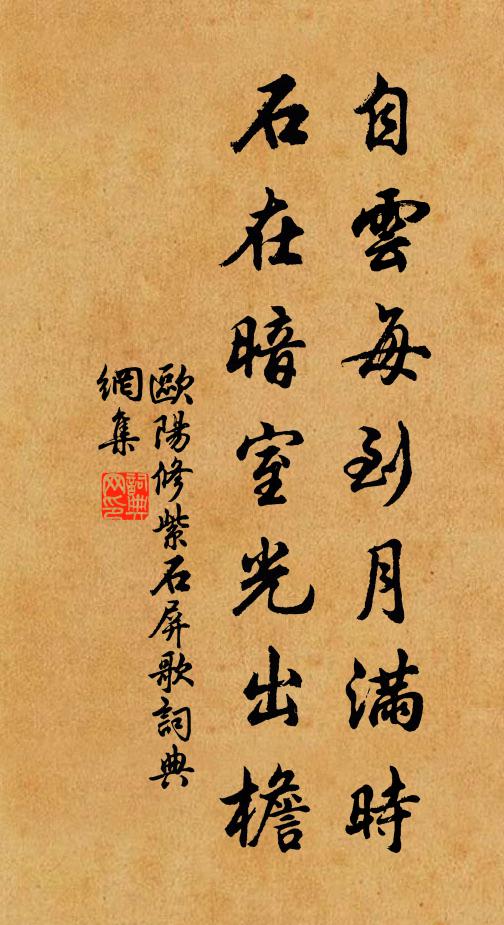 自雲每到月滿時
石在暗室光出檐
歐陽修紫石屏歌詞典
網集
詞典网印